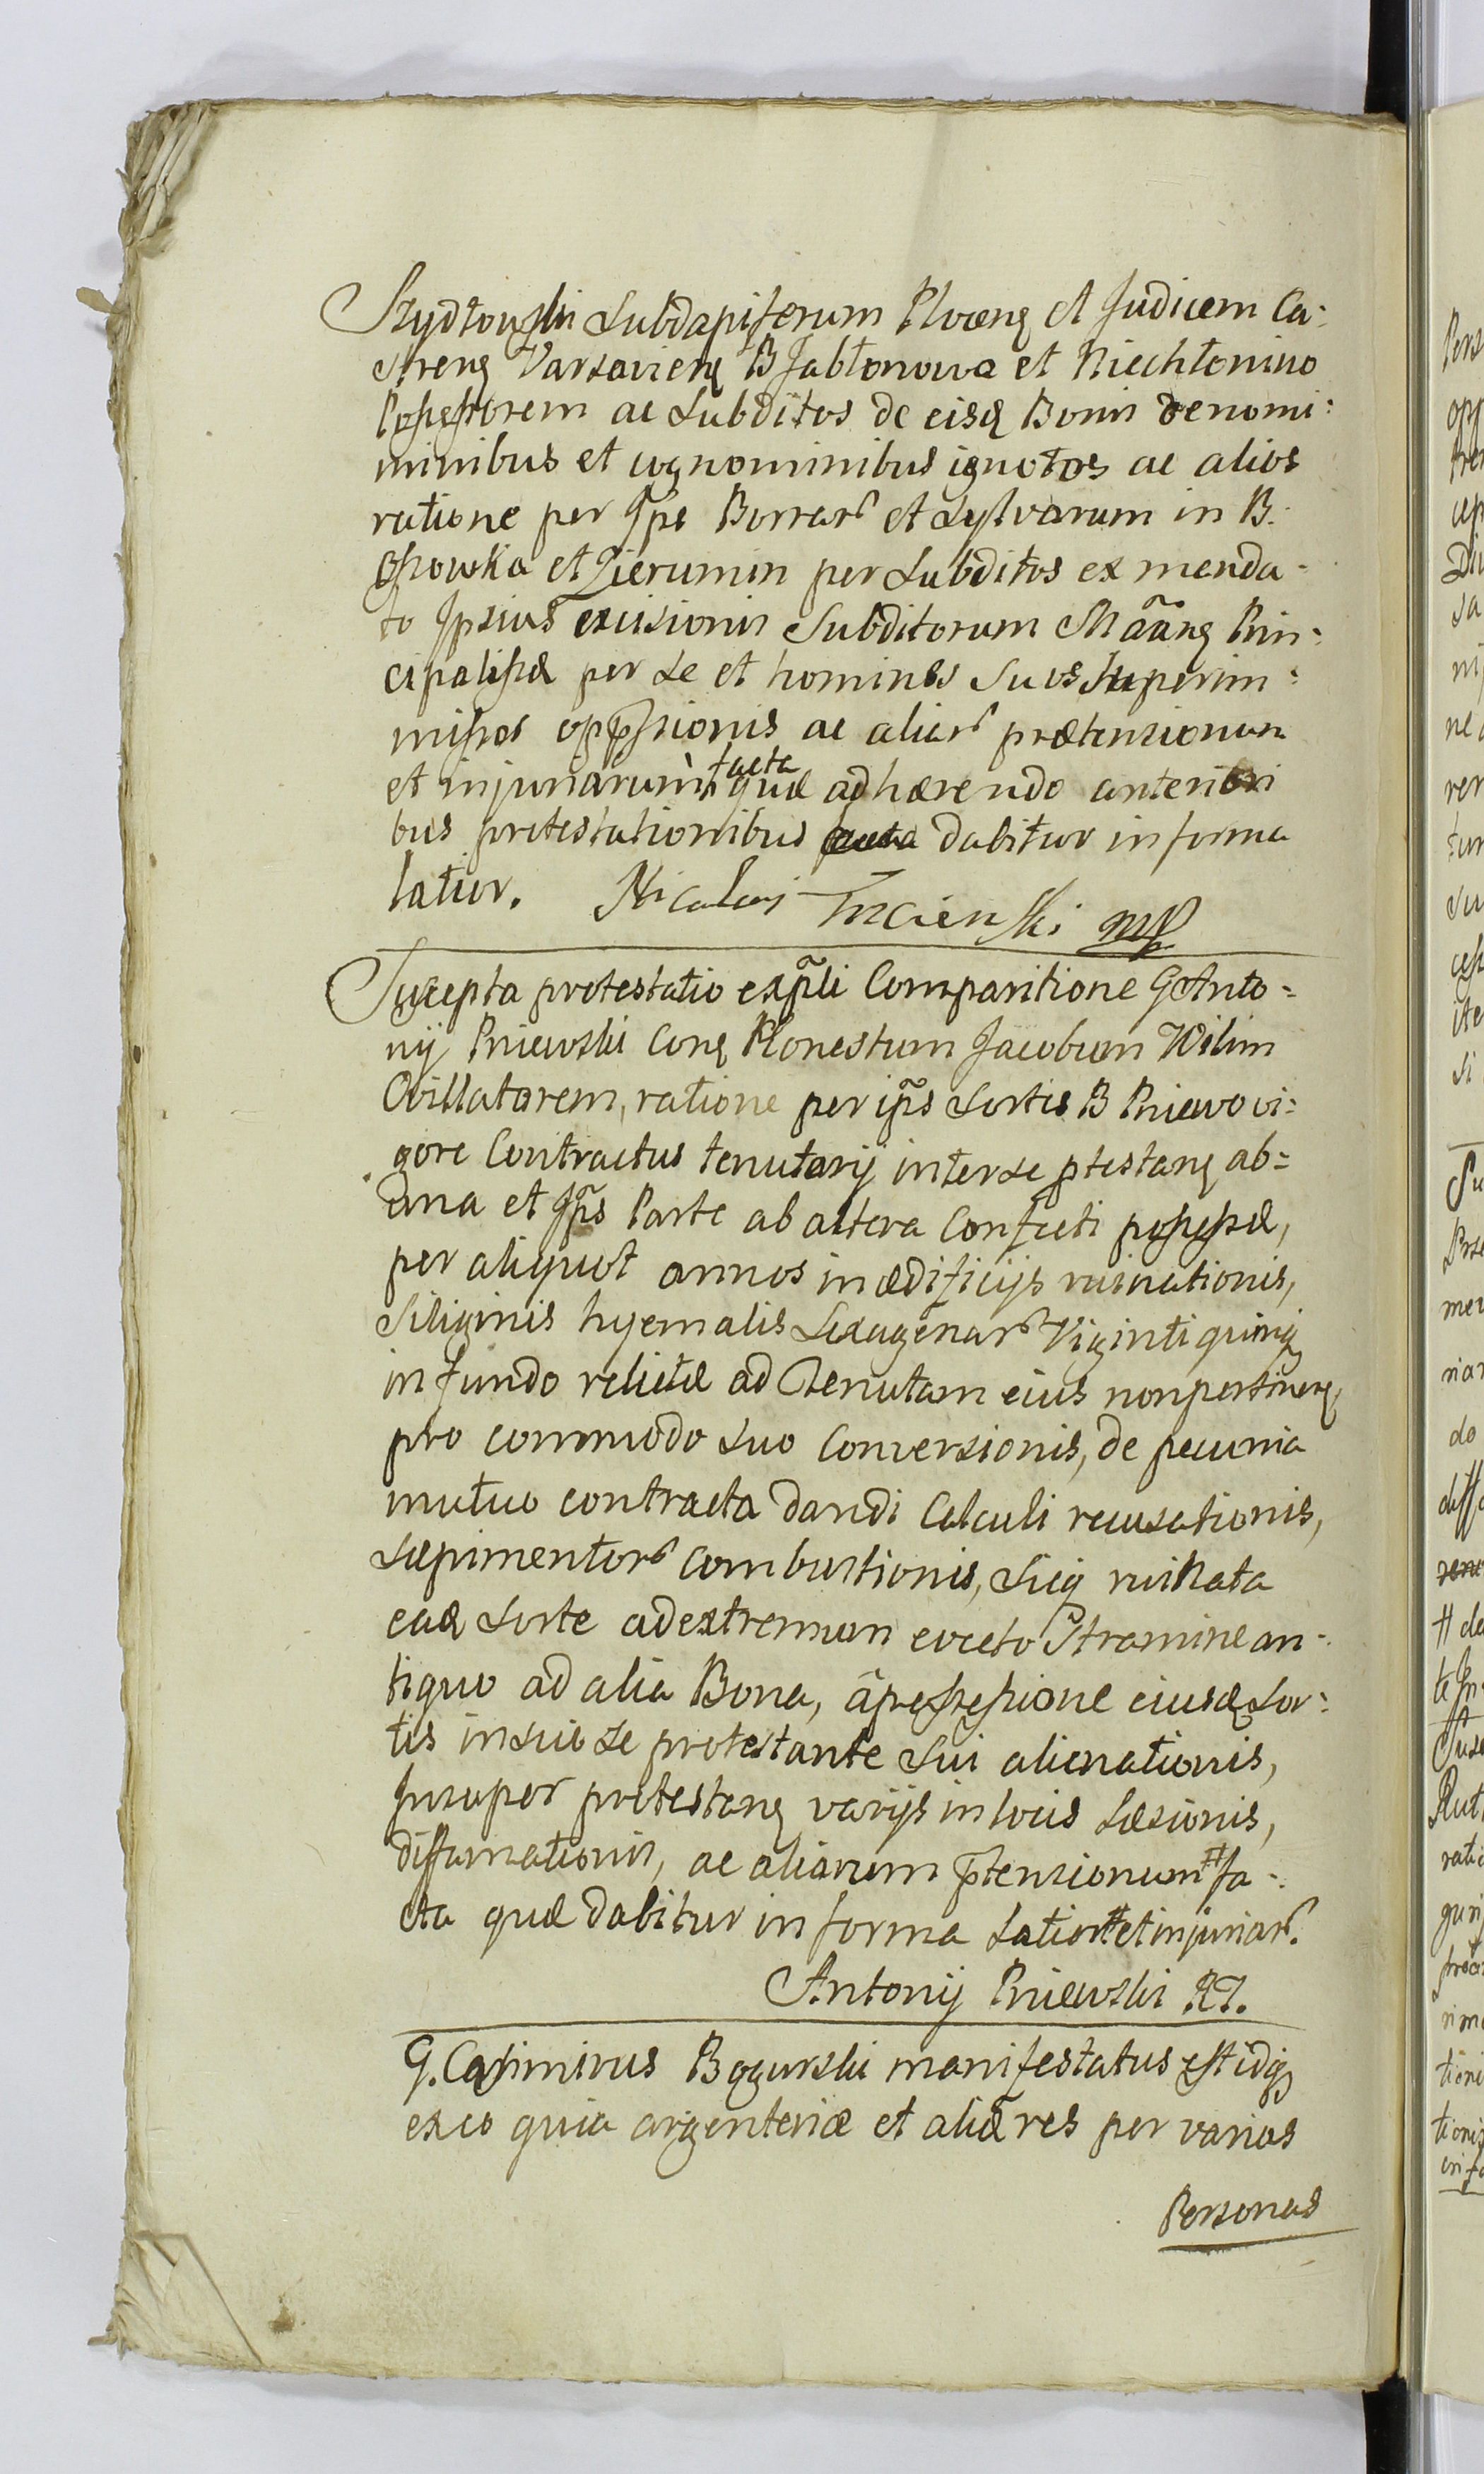 Szydłowski Subdapiferum Plocenȩ et Judicem Ca:
strenȩ Varsavienȩ B Jabłonowa et Niechłonino
Possessorem ac Subditos de eisd Bonis de nomi:
minibus et cognominibus ignotos ac alios
ratione per Ips Borrar et Sylvarum in B.
Ossowka et Zierumin per Subditos ex manda-
to Ipsius excisionis Subditorum Prin:
cipalisq per se et homines suos superim:
missos oppssionis ac aliar prætensionum
et injuriarum facta quæ adhærendo anteriori
bus protestationibus facta dabitur in forma
latior. Nicolai Trzcienski mp
Suscepta protestatio expsli Comparitione G Anto=
nij Pniewski Conȩ Honestum Jacobum Wilim
Ovillatorem, ratione per ips Sortis B Pniewo vi=
gore Contractus tenutarij inter se ptestanȩ ab=
una et Ips Parte ab altera Confecti possessæ,
per aliquot annos in ædificijs ruinationis,
Siliginis hyemalis Sexagenar Viginti quinq
in fundo relictæ ad Tenutam eius non pertinenȩ
pro commodo suo Conversionis, de pecunia
mutuo contracta dandi Calculi recusationis,
Sæpimentor combustionis, Sicq ruinata
ead Sorte ad extremum evecto Stramine an-
tiquo ad alia Bona, a possessione eiusd Sor:
tis in suie se protestante sui alienationis,
Insuper protestanȩ varijs in locis Læsionis,
diffamationis, ac aliarum ptensionum # fa-
cta quæ dabitur in forma Latior # et injuriar.
Antonij Pniewski RT.
G. Casimirus Bogurski manifestatus est idq
ex eo quia argenteriæ et aliæ res per varias
Personas